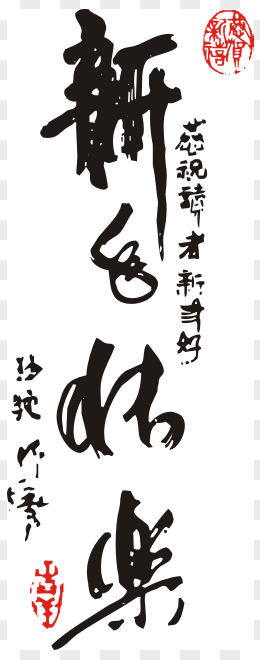 恭賀
新禧
恭祝讀者新年好
新年快樂